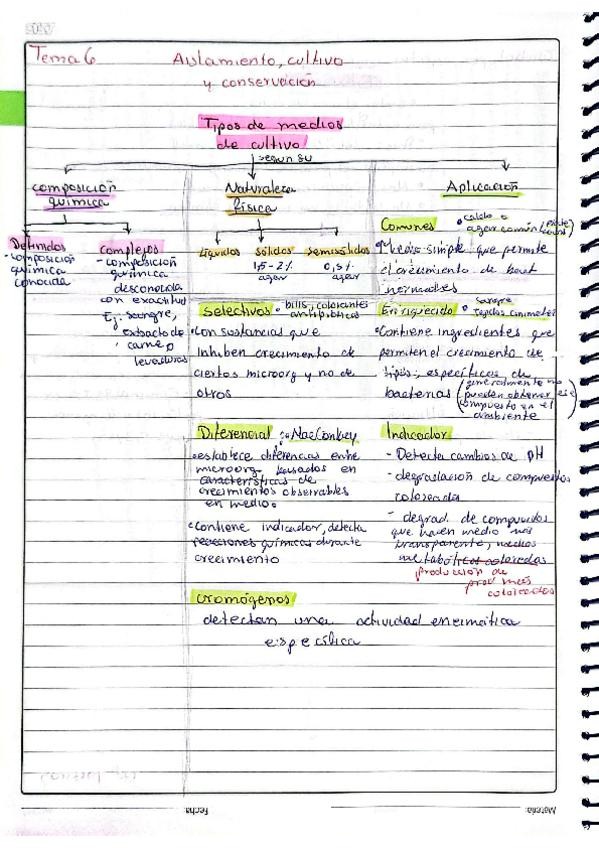 Tema 6 Aislamiento, cultivo
y conservación
Tipos de medios
de cultivo
según su
composición
química
Naturaleza
física
Aplicación
Definidos
- composición
química
conocida
Complejos
- composición
química
desconocida
con exactitud
Ej: sangre,
extracto de
carne o
levaduras
líquidos
sólidos
1,5-2%
agar
semisólidos
0,5%
agar
Comunes • caldo o
agar común
Medio simple que permite
el crecimiento de bact
normales
Selectivos • bilis, colorantes
antibióticos
• Con sustancias que
inhiben crecimiento de
ciertos microorg y no de
otros
Enriquecido • sangre
tejidos animales
• Contiene ingredientes que
permiten el crecimiento de
tipos específicos de
bacterias (generalmente no
pueden obtener ese
compuesto en el
ambiente
Diferencial : MacConkey
• establece diferencias entre
microorg basados en
características de
crecimientos observables
en medio.
• Contiene indicador, detecta
reacciones químicas durante
crecimiento
Indicador
- Detecta cambios de pH
- degradación de compuestos
coloreada
- degrad. de compuestos
que hacen medio más
transparente,
producción de
prod más
coloreados
Cromógenos
detectan una actividad enzimática
específica
Fecha
Materia